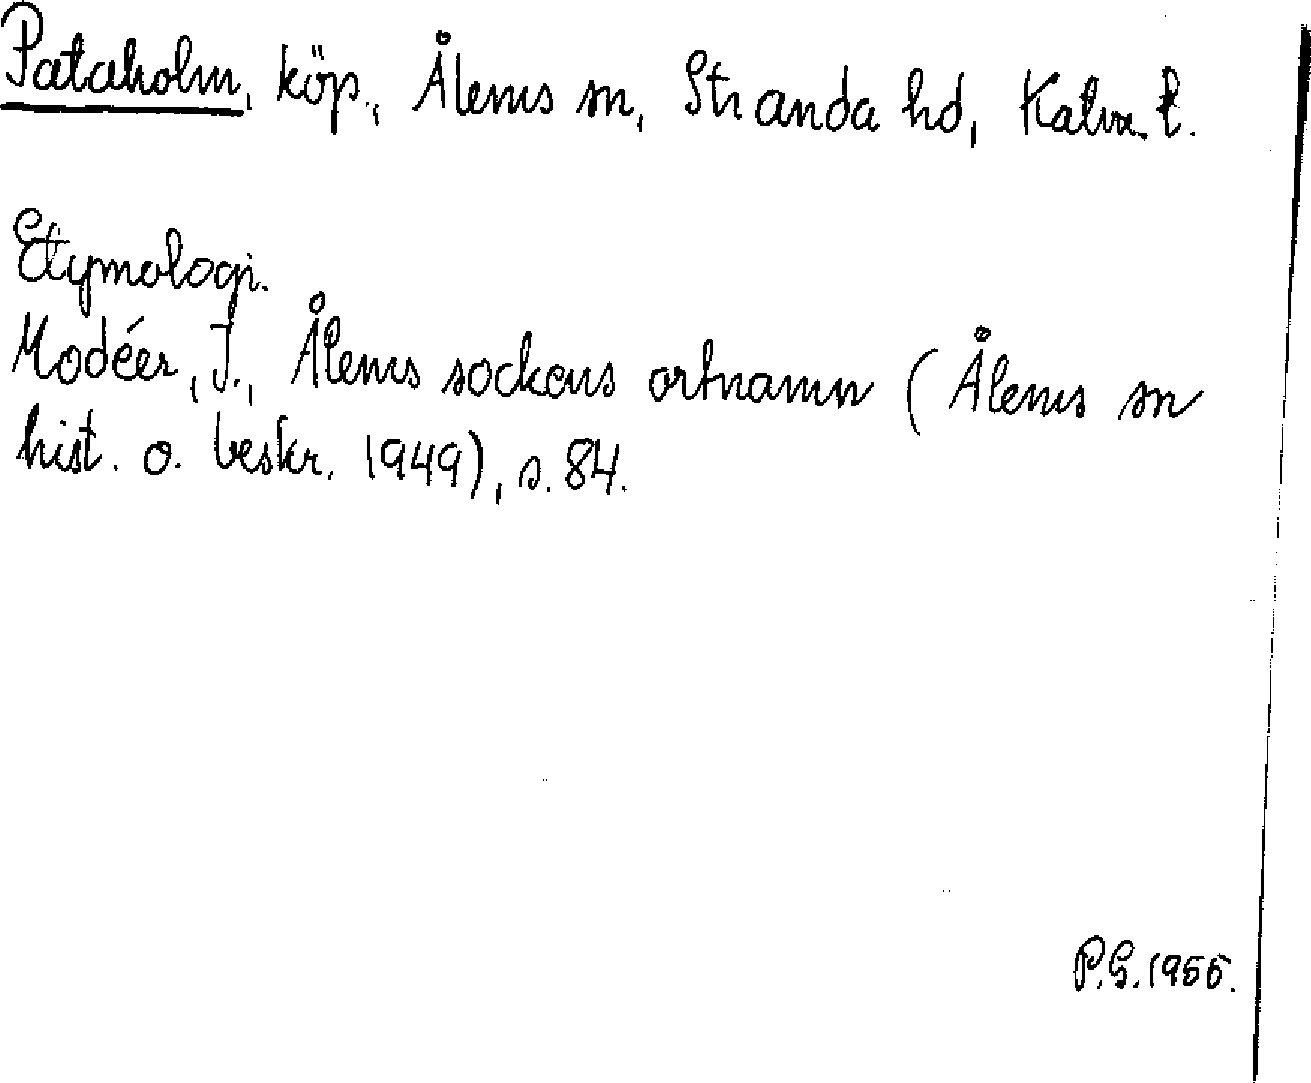 Pataholm, köp., Ålems sn, Stranda hd, Kalm. l.
Etymologi.
Modéer, I., Ålems sockens ortnamn (Ålems sn
hist. o. beskr. 1949), s. 84.
P.G. 1955.